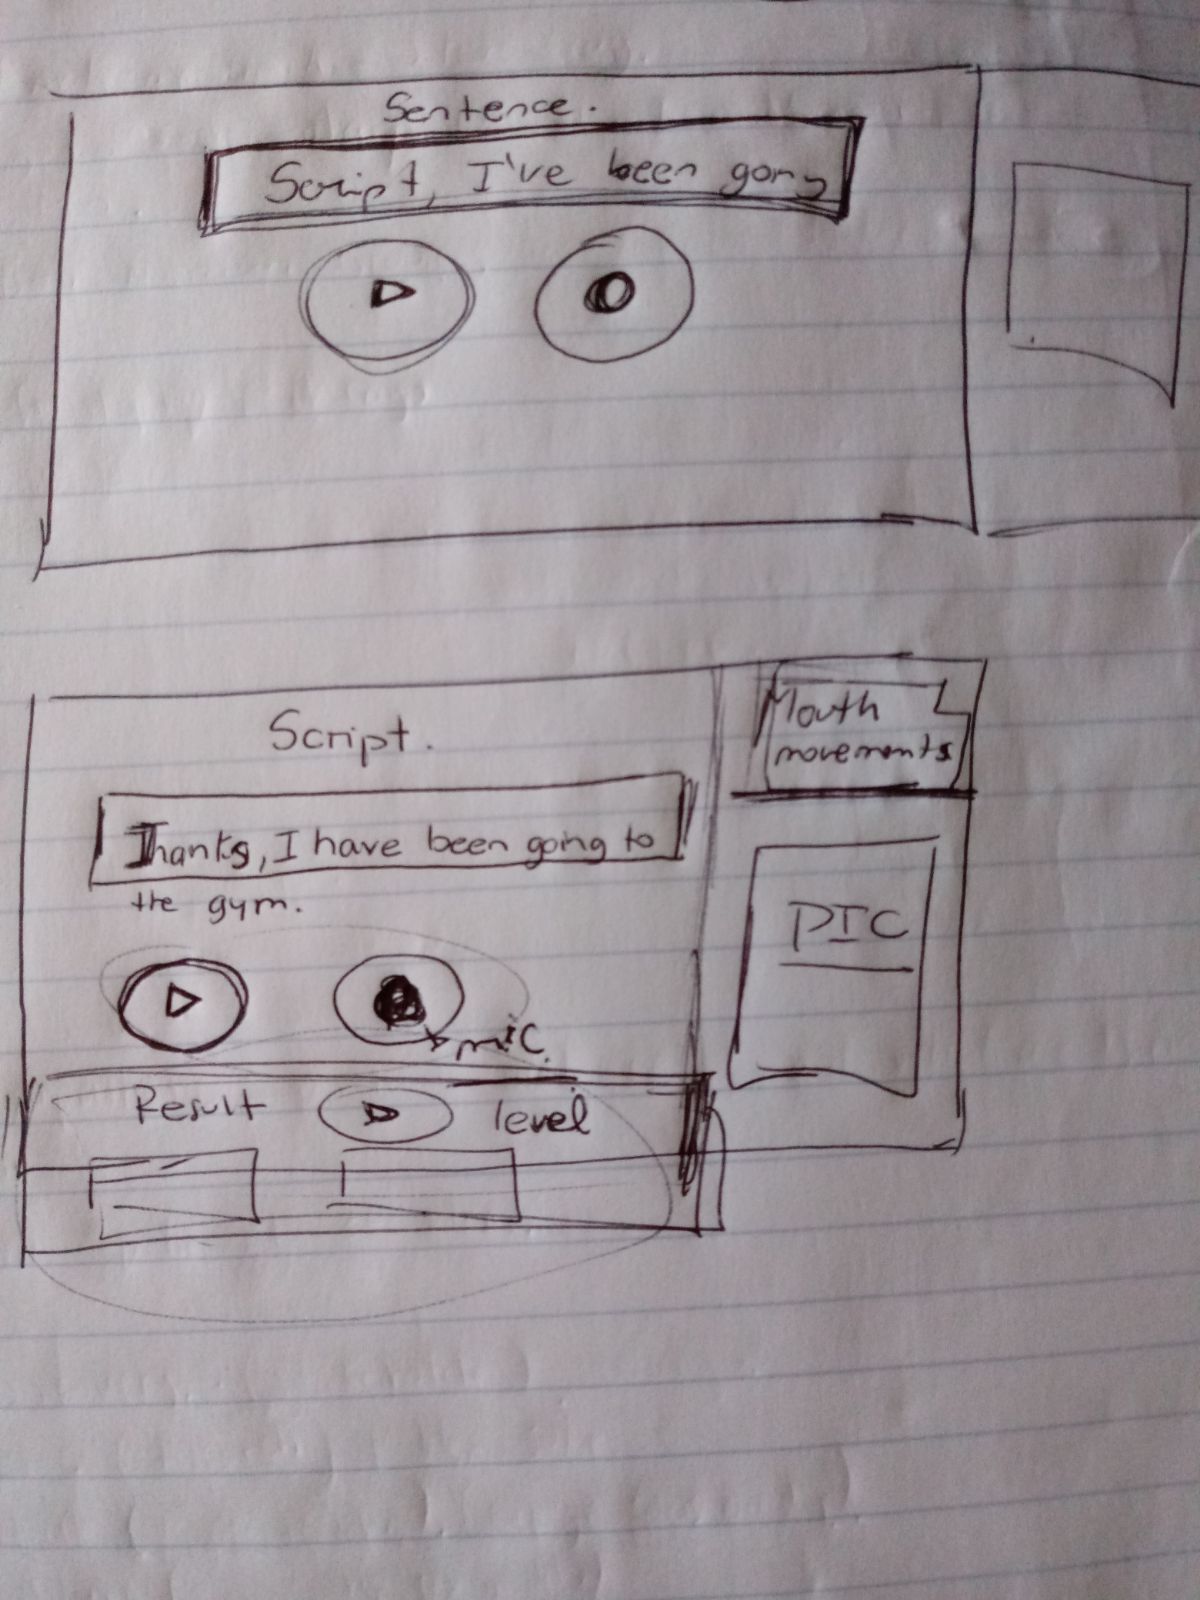 Sentence.
Script, I've been going
Script.
Thanks, I have been going to
the gym.
mic.
Result
level
Mouth
movements
PIC